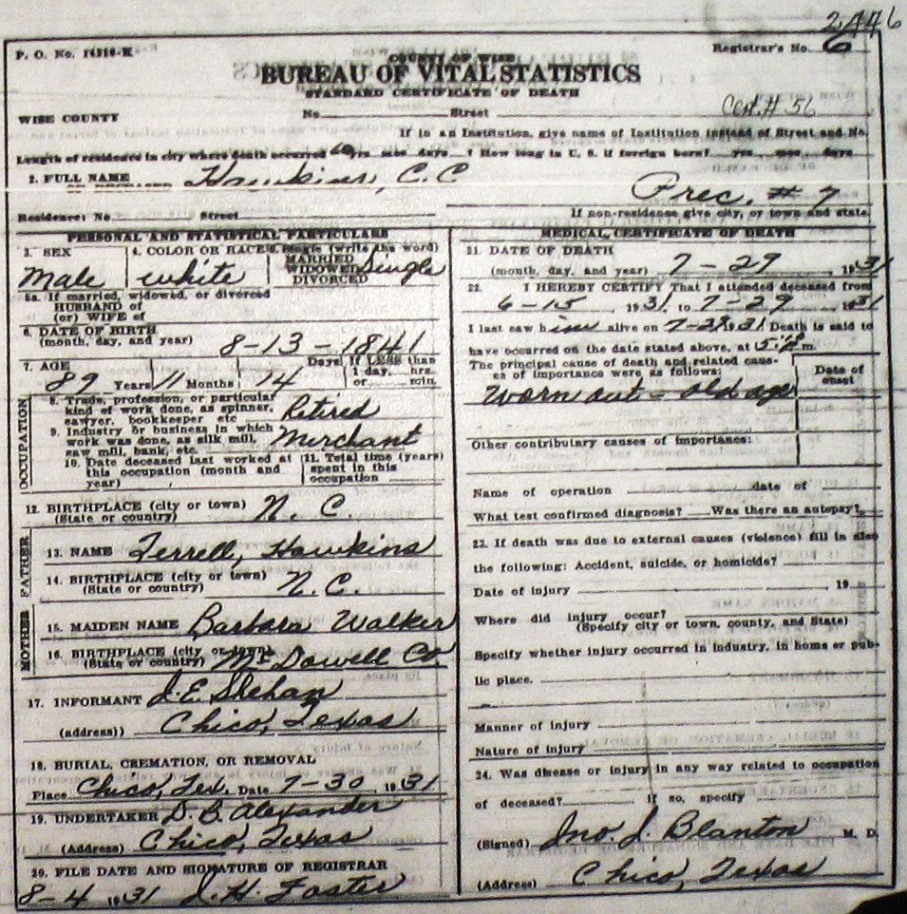 2446
P. O. No. 14316-K
Registrar's No. 6
COUNTY OF WISE
BUREAU OF VITAL STATISTICS
STANDARD CERTIFICATE OF DEATH
Cert. # 56
WISE COUNTY No. Street
If in an Institution, give name of Institution instead of Street and No.
Length of residence in city where death occurred 60 yrs mos days ? How long in U. S. if foreign born? yrs mos days
2. FULL NAME Hawkins, C. C
Prec. # 7
Residence: No Street
If non-residence give city, or town and state.
PERSONAL AND STATISTICAL PARTICULARS
3. SEX Male
4. COLOR OR RACE white
5. Single (write the word) MARRIED WIDOWED DIVORCED Single
5a. If married, widowed, or divorced
HUSBAND of
(or) WIFE of
6. DATE OF BIRTH
(month, day, and year) 8-13-1841
7. AGE 89 Years 11 Months 14 Days If LESS than 1 day, hrs. or min.
OCCUPATION
8. Trade, profession, or particular
kind of work done, as spinner,
sawyer, bookkeeper etc Retired
9. Industry or business in which
work was done, as silk mill,
saw mill, bank, etc. Merchant
10. Date deceased last worked at
this occupation (month and
year)
11. Total time (years)
spent in this
occupation
12. BIRTHPLACE (city or town)
(State or country) N. C.
FATHER
13. NAME Terrell, Hawkins
14. BIRTHPLACE (city or town)
(State or country) N. C.
MOTHER
15. MAIDEN NAME Barbara Walker
16. BIRTHPLACE (city or town)
(State or country) McDowell Co
17. INFORMANT J. E. Shehan
(address)) Chico, Texas
18. BURIAL, CREMATION, OR REMOVAL
Place Chico, Tex. Date 7-30, 1931
19. UNDERTAKER D. B. Alexander
(Address) Chico, Texas
20. FILE DATE AND SIGNATURE OF REGISTRAR
8-4 1931 J. H. Foster
MEDICAL CERTIFICATE OF DEATH
21. DATE OF DEATH
(month, day, and year) 7-29, 1931
22. I HEREBY CERTIFY That I attended deceased from
6-15 1931, to 7-29 1931
I last saw him alive on 7-29 31 Death is said to
have occurred on the date stated above, at m.
The principal cause of death and related cau-
es of importance were as follows:
Date of
onset
Worn out - old age
Other contributary causes of importance:
Name of operation date of
What test confirmed diagnosis? Was there an autopsy?
23. If death was due to external causes (violence) fill in also
the following: Accident, suicide, or homicide?
Date of injury 19
Where did injury occur?
(Specify city or town, county, and State)
Specify whether injury occurred in industry, in home or pub-
lic place.
Manner of injury
Nature of injury
24. Was disease or injury in any way related to occupation
of deceased? if so, specify
(Signed) Jno. J. Blanton M. D.
(Address) Chico, Texas